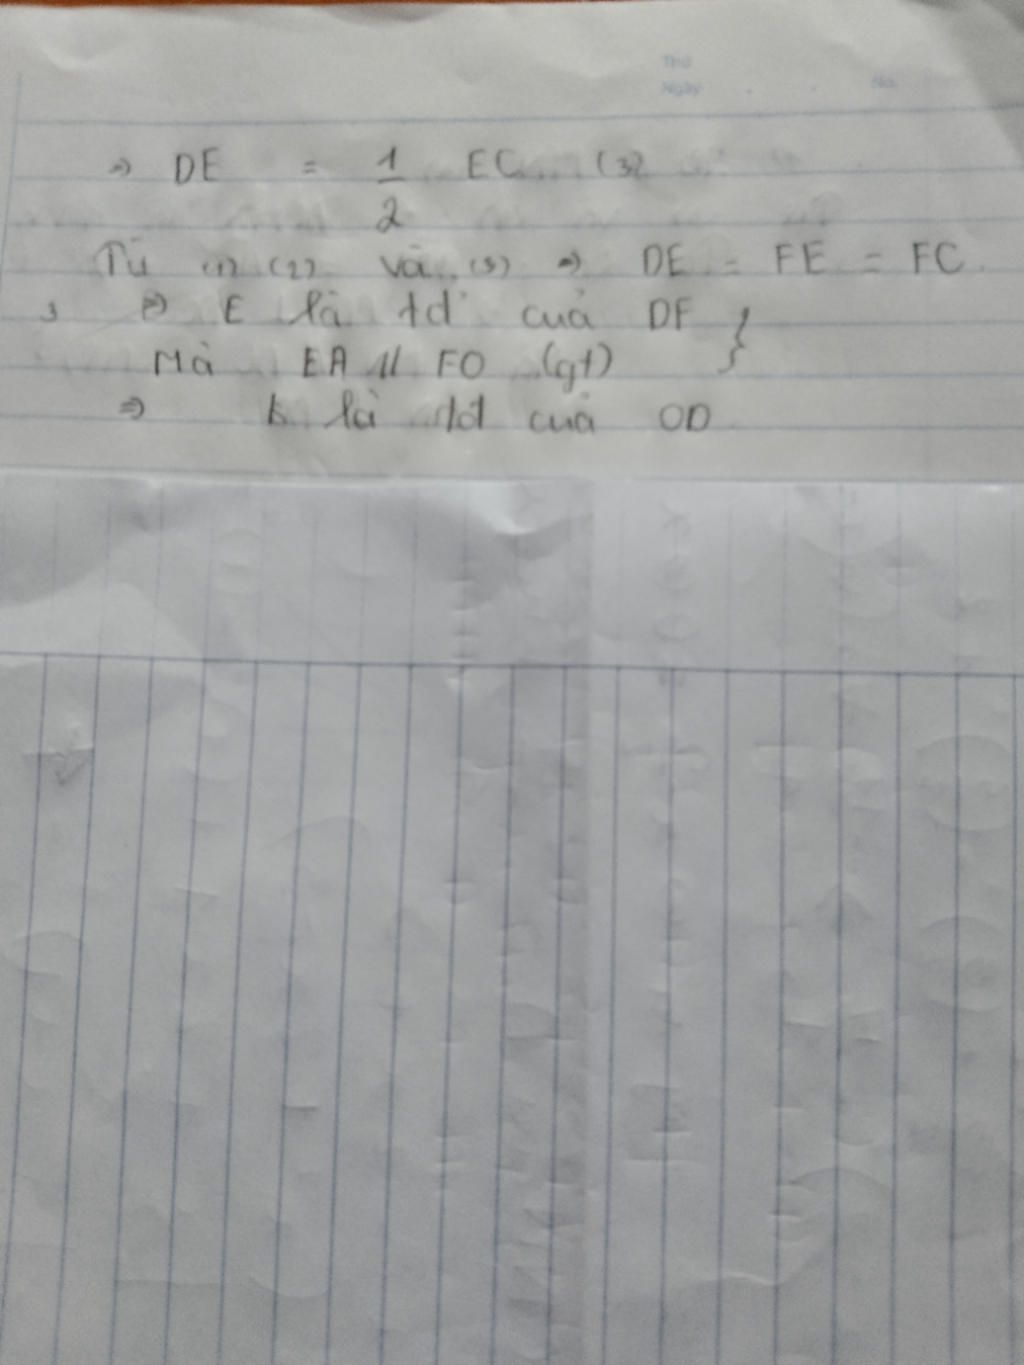 Thứ
Ngày No.
⇒ DE = 1/2 EC (3)
Từ (1) (2) và (3) ⇒ DE = FE = FC.
⇒ E là tđ của DF }
Mà EA // FO (gt)
⇒ là tđ của OD